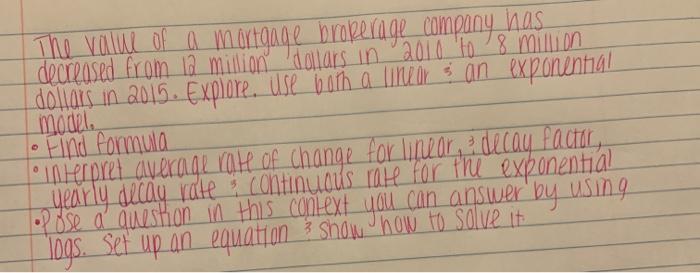 The value of a mortgage brokerage company has
decreased from 12 million dollars in 2010 to 8 million
dollars in 2015. Explore. Use both a linear & an exponential
model.
• Find formula
• interpret average rate of change for linear, & decay factor,
yearly decay rate & continuous rate for the exponential
• Pose a question in this context you can answer by using
logs. Set up an equation & show how to solve it.